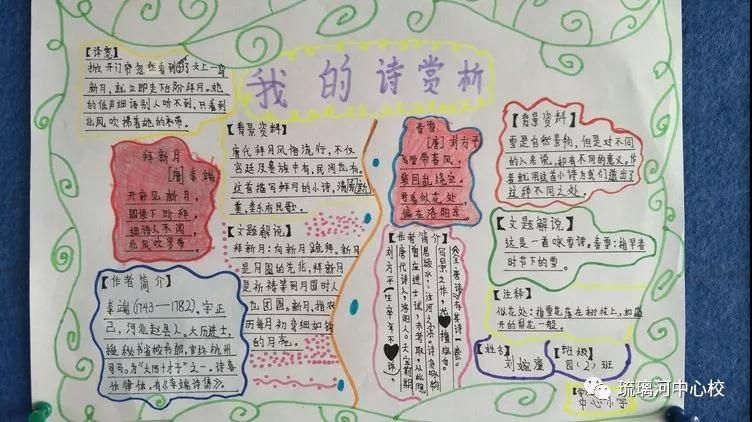 我的诗赏析
【译意】
抛开门帘忽然看到了天上一弯
新月，就立即走下阶拜月。她
的低声细语别人听不到，只看到
北风吹拂着她的衣带。
拜新月
【唐】李端
开帘见新月，
即便下阶拜。
细语人不闻，
北风吹罗带。
【作者简介】
李端（1743—1782），字正
己，河北赵县人。大历进士，
授秘书省校书郎，官终杭州
司马。为"大历十才子"之一。诗喜
作律体，有《李端诗集》。
【背景资料】
唐代拜月风俗流行，不仅
宫廷及贵族中有，民间也有。
这首描写拜月的小诗，清
美，类乐府民歌。
【文题解说】
拜新月：向新月跪拜。新月
是月圆的先兆，拜新月
是祈祷等到月圆时人
也团圆。新月，指农
历每月初弯细如钩
的月亮。
春雪
【唐】刘方平
飞雪带春风，
裴回乱绕空。
君看似花处，
偏在洛阳东。
【作者简介】
刘方平生卒年不详，
唐代诗人，洛阳人。天宝前期
曾应进士试，未考取，从此隐
居颍水、汝河之滨。诗多咏物
写景之作，尤擅绝句。
《全唐诗》存其诗一卷。
【背景资料】
雪是自然景物，但是对不同
的人来说，却有不同的意义。作
者就用这首小诗为我们道出了
这种不同之处。
【文题解说】
这是一首咏雪诗。春雪：指早春
时节下的雪。
【注释】
似花处：指雪花落在树枝上，如盛
开的梨花一般。
【姓名】
刘婉滢
【班级】
四（2）班
中心小学
琉璃河中心校